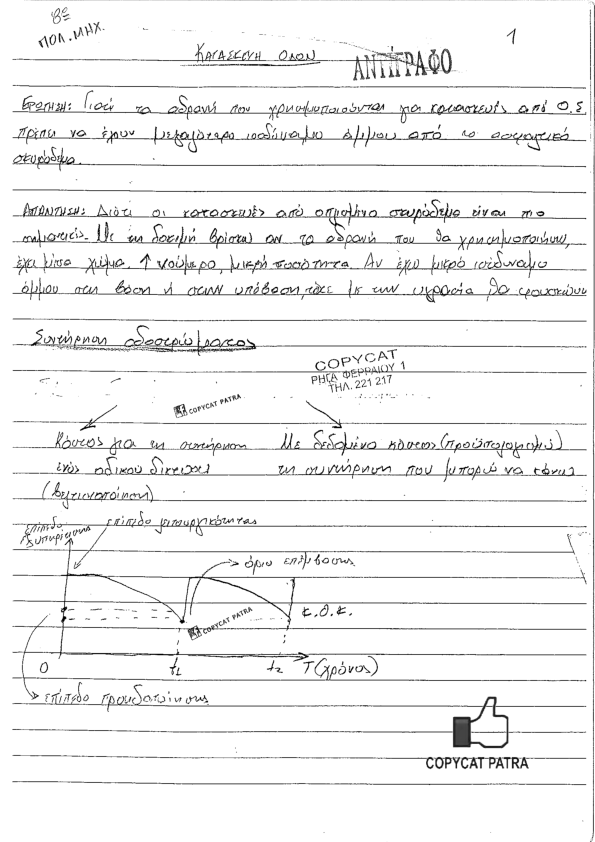 8ο
ΠΟΛ. ΜΗΧ.
1
ΚΑΤΑΣΚΕΥΗ ΟΔΩΝ
ΑΝΤΙΓΡΑΦΟ
ΕΡΩΤΗΣΗ: Γιατί τα αδρανή που χρησιμοποιούνται για κατασκευές από Ο.Σ.
πρέπει να έχουν μεγαλύτερο ισοδύναμο άμμου από το ασφαλτικό
σκυρόδεμα.
ΑΠΑΝΤΗΣΗ: Διότι οι κατασκευές από οπλισμένο σκυρόδεμα είναι πιο
σημαντικές. Με τη δοκιμή βρίσκω αν τα αδρανή που θα χρησιμοποιήσω,
έχει μέσα χώμα. ↑ νούμερο, μικρή ποσότητα. Αν έχω μικρό ισοδύναμο
άμμου στη βάση ή στην υπόβαση, τότε με την υγρασία θα
Συντήρηση οδοστρώματος
COPYCAT
ΡΗΓΑ ΦΕΡΡΑΙΟΥ 1
ΤΗΛ. 221 217
COPYCAT PATRA
Κόστος για τη συντήρηση Με δεδομένο κόστος (προϋπολογισμό)
ενός οδικού δικτύου τη συντήρηση που μπορώ να κάνω
(βελτιστοποίηση)
επίπεδο
εξυπηρέτησης
επίπεδο λειτουργικότητας
όριο επέμβασης
Κ.Ο.Κ.
COPYCAT PATRA
0 t1 t2 T (χρόνος)
επίπεδο προειδοποίησης
COPYCAT PATRA